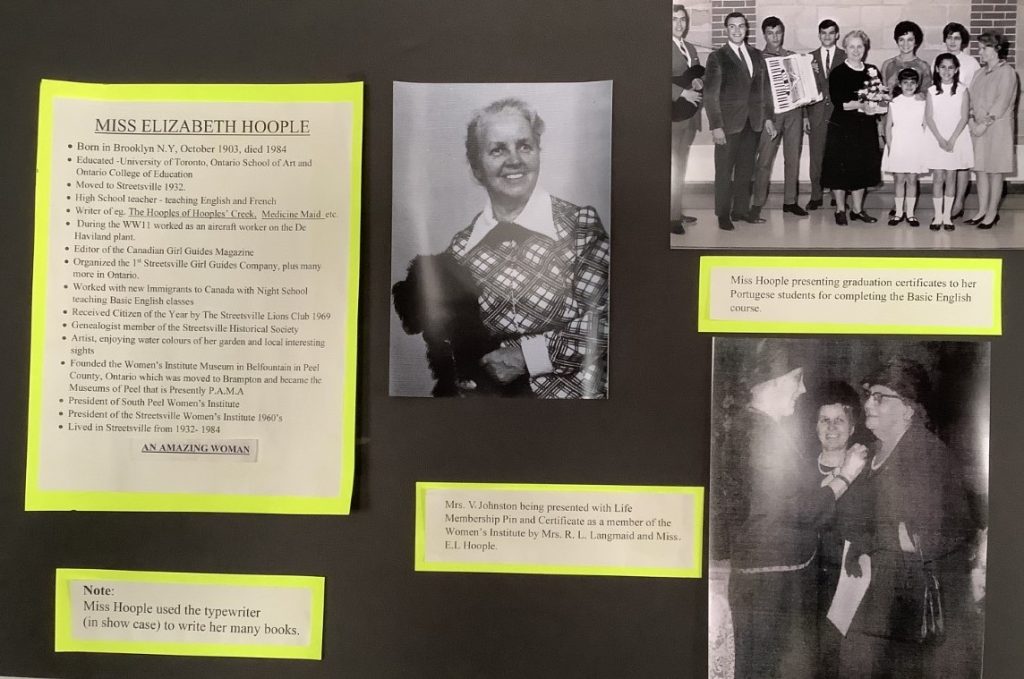 MISS ELIZABETH HOOPLE
• Born in Brooklyn N.Y, October 1903, died 1984
• Educated -University of Toronto, Ontario School of Art and
Ontario College of Education
• Moved to Streetsville 1932.
• High School teacher - teaching English and French
• Writer of eg. The Hooples of Hooples' Creek, Medicine Maid etc.
• During the WW11 worked as an aircraft worker on the De
Haviland plant.
• Editor of the Canadian Girl Guides Magazine
• Organized the 1st Streetsville Girl Guides Company, plus many
more in Ontario.
• Worked with new Immigrants to Canada with Night School
teaching Basic English classes
• Received Citizen of the Year by The Streetsville Lions Club 1969
• Genealogist member of the Streetsville Historical Society
• Artist, enjoying water colours of her garden and local interesting
sights
• Founded the Women's Institute Museum in Belfountain in Peel
County, Ontario which was moved to Brampton and became the
Museums of Peel that is Presently P.A.M.A
• President of South Peel Women's Institute
• President of the Streetsville Women's Institute 1960's
• Lived in Streetsville from 1932- 1984
AN AMAZING WOMAN
Note:
Miss Hoople used the typewriter
(in show case) to write her many books.
Miss Hoople presenting graduation certificates to her
Portugese students for completing the Basic English
course.
Mrs. V. Johnston being presented with Life
Membership Pin and Certificate as a member of the
Women's Institute by Mrs. R. L. Langmaid and Miss.
E.L Hoople.